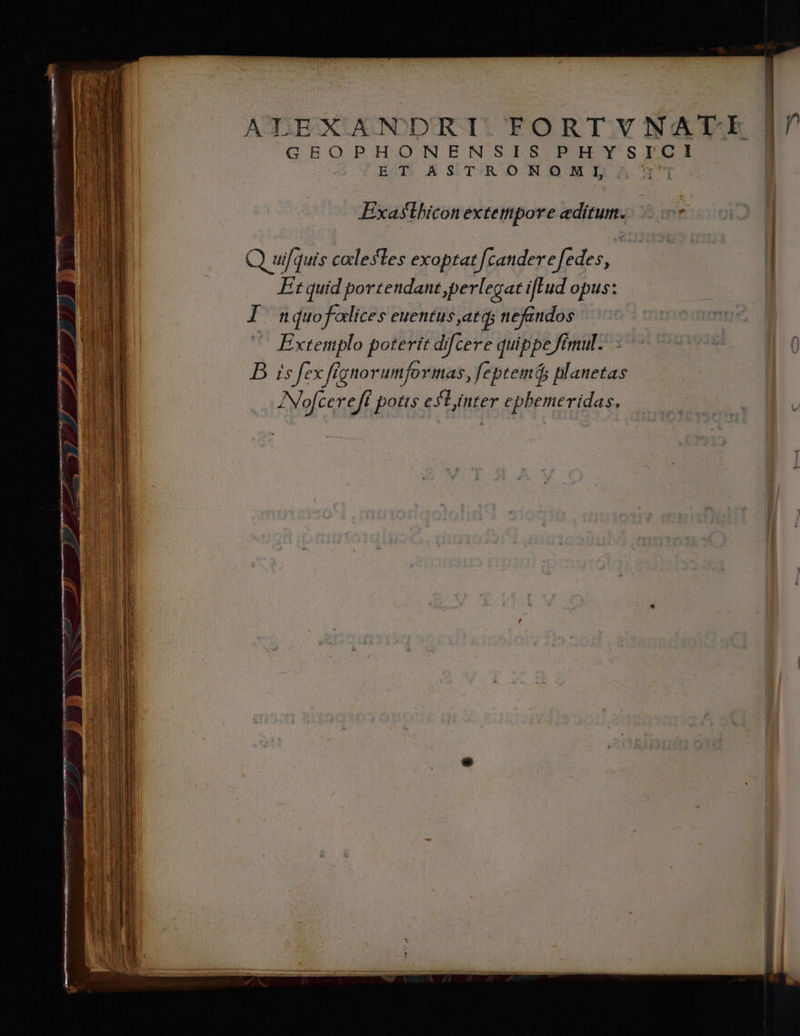 ALEXANDRI FORTVNATI
GEOPHONENSIS PHYSICI
ET ASTRONOMI,
Exasthicon extempore æditum.
Quiſquis cœlestes exoptat ſcandere ſedes,
Et quid portendant, perlegat iſtud opus:
In quo fœlices euentus, atq; nefandos
Extemplo poterit diſcere quippe ſimul.
Bis ſex ſignorum formas, ſeptemq; planetas
Noſcere ſi potis est, inter ephemeridas.